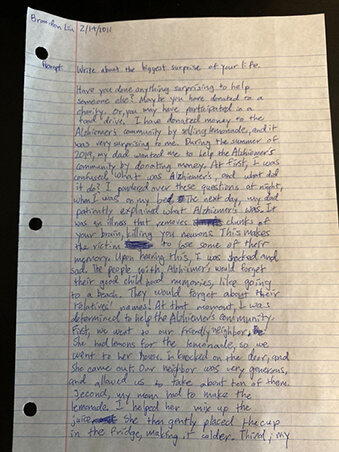 Brandon Liu 2/19/2021
Prompt: Write about the biggest surprise of your life.
Have you done anything surprising to help
someone else? Maybe you have donated to a
charity. Or, you may have participated in a
food drive. I have donated money to the
Alzhiemer's community by selling lemonade, and it
was very surprising to me. During the summer of
2019, my dad wanted me to help the Alzhiemer's
community by donating money. At first, I was
confused. What was Alzhiemer's, and what did
it do? I pondered over these questions at night,
when I was on my bed. The next day, my dad
patiently explained what Alzhiemer's was. It
was an illness that removes chunks of
your brain, killing you neurons. This makes
the victim to lose some of their
memory. Upon hearing this, I was shocked and
sad. The people with Alzhiemer's would forget
their good childhood memories, like going
to a beach. They would forget about their
relatives' names! At that moment, I was
determined to help the Alzhiemer's community.
First, we went to our friendly neighbor.
She had lemons for the lemonade, so we
went to her house. I knocked on the door, and
she came out. Our neighbor was very generous,
and allowed us to take about ten of them.
Second, my mom had to make the
lemonade. I helped her mix up the
juice. She then gently placed the cup
in the fridge, making it colder. Third, my